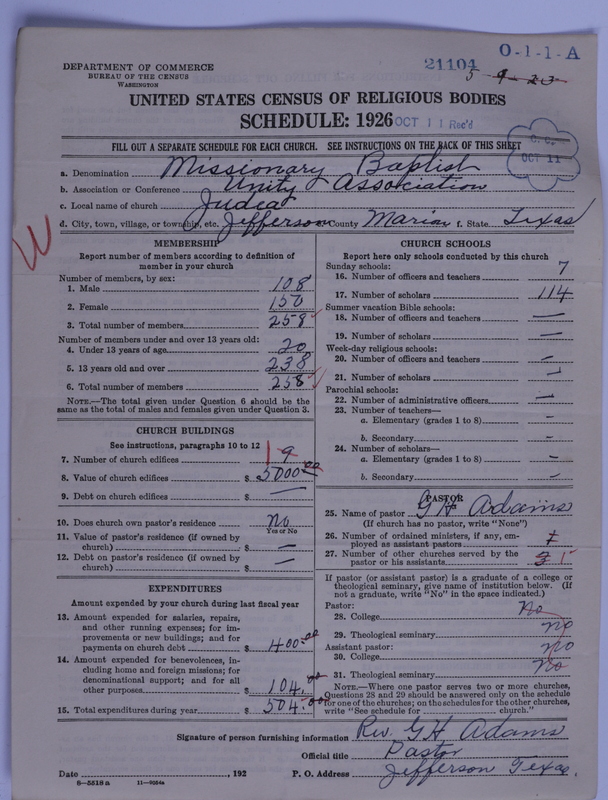 O-1-1-A
21104
5-9-23
DEPARTMENT OF COMMERCE
BUREAU OF THE CENSUS
WASHINGTON
UNITED STATES CENSUS OF RELIGIOUS BODIES
SCHEDULE: 1926 OCT 11 Rec'd
FILL OUT A SEPARATE SCHEDULE FOR EACH CHURCH. SEE INSTRUCTIONS ON THE BACK OF THIS SHEET
OCT 11
a. Denomination Missionary Baptist
b. Association or Conference Unity Association
c. Local name of church Judea
d. City, town, village, or township, etc. Jefferson County Marion f. State Texas
W
MEMBERSHIP
Report number of members according to definition of
member in your church
Number of members, by sex:
1. Male 108
2. Female 150
3. Total number of members 258
Number of members under and over 13 years old:
4. Under 13 years of age 20
5. 13 years old and over 238
6. Total number of members 258
NOTE.—The total given under Question 6 should be the
same as the total of males and females given under Question 3.
CHURCH BUILDINGS
See instructions, paragraphs 10 to 12
7. Number of church edifices 1
8. Value of church edifices $ 5000.00
9. Debt on church edifices $ —
10. Does church own pastor's residence No
Yes or No
11. Value of pastor's residence (if owned by
church) $ —
12. Debt on pastor's residence (if owned by
church) $ —
EXPENDITURES
Amount expended by your church during last fiscal year
13. Amount expended for salaries, repairs,
and other running expenses; for im-
provements or new buildings; and for
payments on church debt $ 400.00
14. Amount expended for benevolences, in-
cluding home and foreign missions; for
denominational support; and for all
other purposes $ 104.00
15. Total expenditures during year $ 504.00
CHURCH SCHOOLS
Report here only schools conducted by this church
Sunday schools:
16. Number of officers and teachers 7
17. Number of scholars 114
Summer vacation Bible schools:
18. Number of officers and teachers —
19. Number of scholars —
Week-day religious schools:
20. Number of officers and teachers —
21. Number of scholars —
Parochial schools:
22. Number of administrative officers —
23. Number of teachers—
a. Elementary (grades 1 to 8) —
b. Secondary —
24. Number of scholars—
a. Elementary (grades 1 to 8) —
b. Secondary —
PASTOR
25. Name of pastor G H Adams
(If church has no pastor, write "None")
26. Number of ordained ministers, if any, em-
ployed as assistant pastors
27. Number of other churches served by the
pastor or his assistants
If pastor (or assistant pastor) is a graduate of a college or
theological seminary, give name of institution below. (If
not a graduate, write "No" in the space indicated.)
Pastor:
28. College No
29. Theological seminary no
Assistant pastor:
30. College no
31. Theological seminary No
NOTE.—Where one pastor serves two or more churches,
Questions 28 and 29 should be answered only on the schedule
for one of the churches; on the schedules for the other churches,
write "See schedule for church."
Signature of person furnishing information Rev. G H Adams
Official title Pastor
Date , 192 P. O. Address Jefferson Texas.
8—5518 a 11—9084a